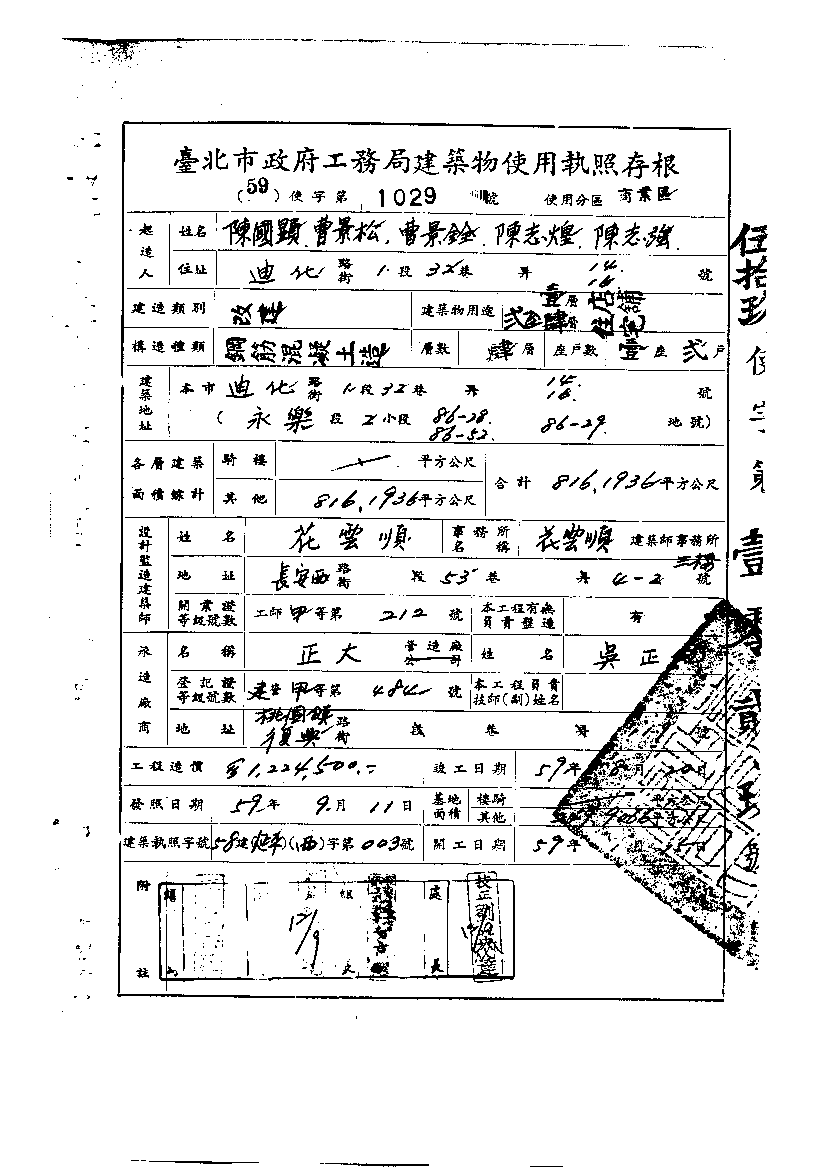 臺北市政府工務局建築物使用執照存根
(59)使字第 1029 號 使用分區 商業區
起造人 姓名 陳國顯.曹景松.曹景銓.陳志煌.陳志強.
住址 迪化 路街 1段 32巷 弄 14. 16 號
建造類別 改建 建築物用途 壹層店舖 弍至肆層住宅
構造種類 鋼筋混凝土造 層數 肆層 座戶數 壹座 弍戶
建築地址 本市 迪化 路街 1段 32巷 弄 14. 16. 號
(永樂 段 2小段 86-28. 86-52. 86-29. 地號)
各層建築面積總計 騎樓 平方公尺 合計 816.1936平方公尺
其他 816.1936平方公尺
設計監造建築師 姓名 花雲順 事務所名稱 花雲順 建築師事務所
地址 長安西 路街 段 53巷 弄 4-2 號
開業證等級號數 工師甲等第 212 號 本工程有無負責監造 有
承造廠商 名稱 正大 營造廠公司 姓名 吳正
登記證等級號數 建營甲等第 484 號 本工程負責技師(副)姓名
地址 桃園鎮復興 路街 段 巷 弄 號
工程造價 $1,224,500.- 竣工日期 59年 8月 20日
發照日期 59年 9月 11日 基地面積 騎樓 平方公尺
其他
建築執照字號 58建(延平)(西)字第003號 開工日期 59年
附註
組長
處長
12/9
校正
伍拾玖使字第壹零貳玖號